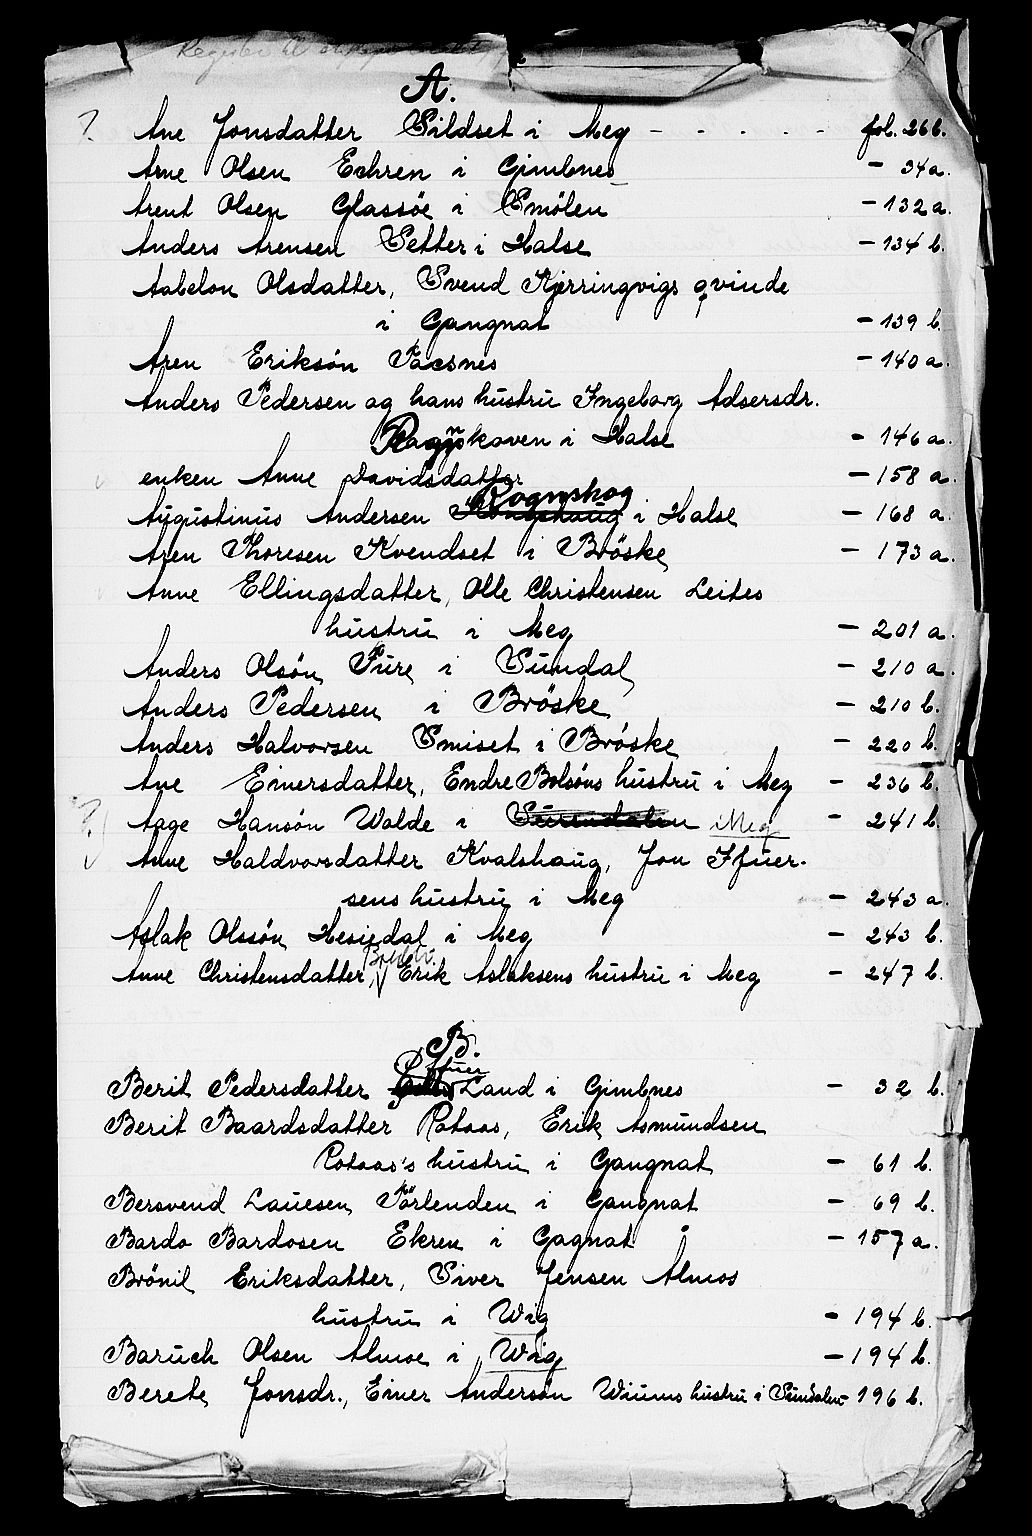 Register til
A.
? Ane Jonsdatter Sildset i Meg - - - - - fol. 26 b.
Arne Olsen Echren i Gimbnes - 34 a.
Arent Olsen Glassöe i Smölen - 132 a.
Anders Arensen Setter i Halse - 134 b.
Aabelon Olsdatter, Svend Kjerringvigs qvinde
i Gangnat - 139 b.
Aren Eriksön Tacsnes - 140 a.
Anders Pedersen og hans hustru Ingeborg Adsersdr.
Ragnskoven i Halse - 146 a.
enken Anne Davidsdatter - 158 a.
Rognskog
Augustinus Andersen i Halse - 168 a.
Aren Thoresen Kvendset i Bröske - 173 a.
Anne Ellingsdatter, Olle Christensen Leites
hustru i Meg - 201 a.
Anders Olsön Ture i Sundal - 210 a.
Anders Pedersen i Bröske - 210 b.
Anders Halvorsen Smiset i Bröske - 220 b.
Ane Einersdatter, Endre Bolsöns hustru i Meg - 236 b.
? Aage Hansön Walde i Surendalen Meg - 241 b.
Anne Haldvorsdatter Kvalshaug, Jon Ifuer-
sens hustru i Meg - 243 a.
Aslak Olssön Hesiedal i Meg - 243 b.
Anne Christensdatter, Erik Aslaksens hustru i Meg - 247 b.
B.
Offuer
Berit Pedersdatter Land i Gimbnes - 32 b.
Berit Baardsdatter Rotaas, Erik Asmundsen
Rotaas's hustru i Gangnat - 61 b.
Bersvend Lauesen Törlenden i Gangnat - 69 b.
Bardo Bardosen Ekren i Gagnat - 157 a.
Brönil Eriksdatter, Siver Jensen Almos
hustru i Wig - 194 b.
Baruch Olsen Almoe i Wig - 194 b.
Berete Jonsdr., Einer Andersön Wiums hustru i Sundalen - 196 b.